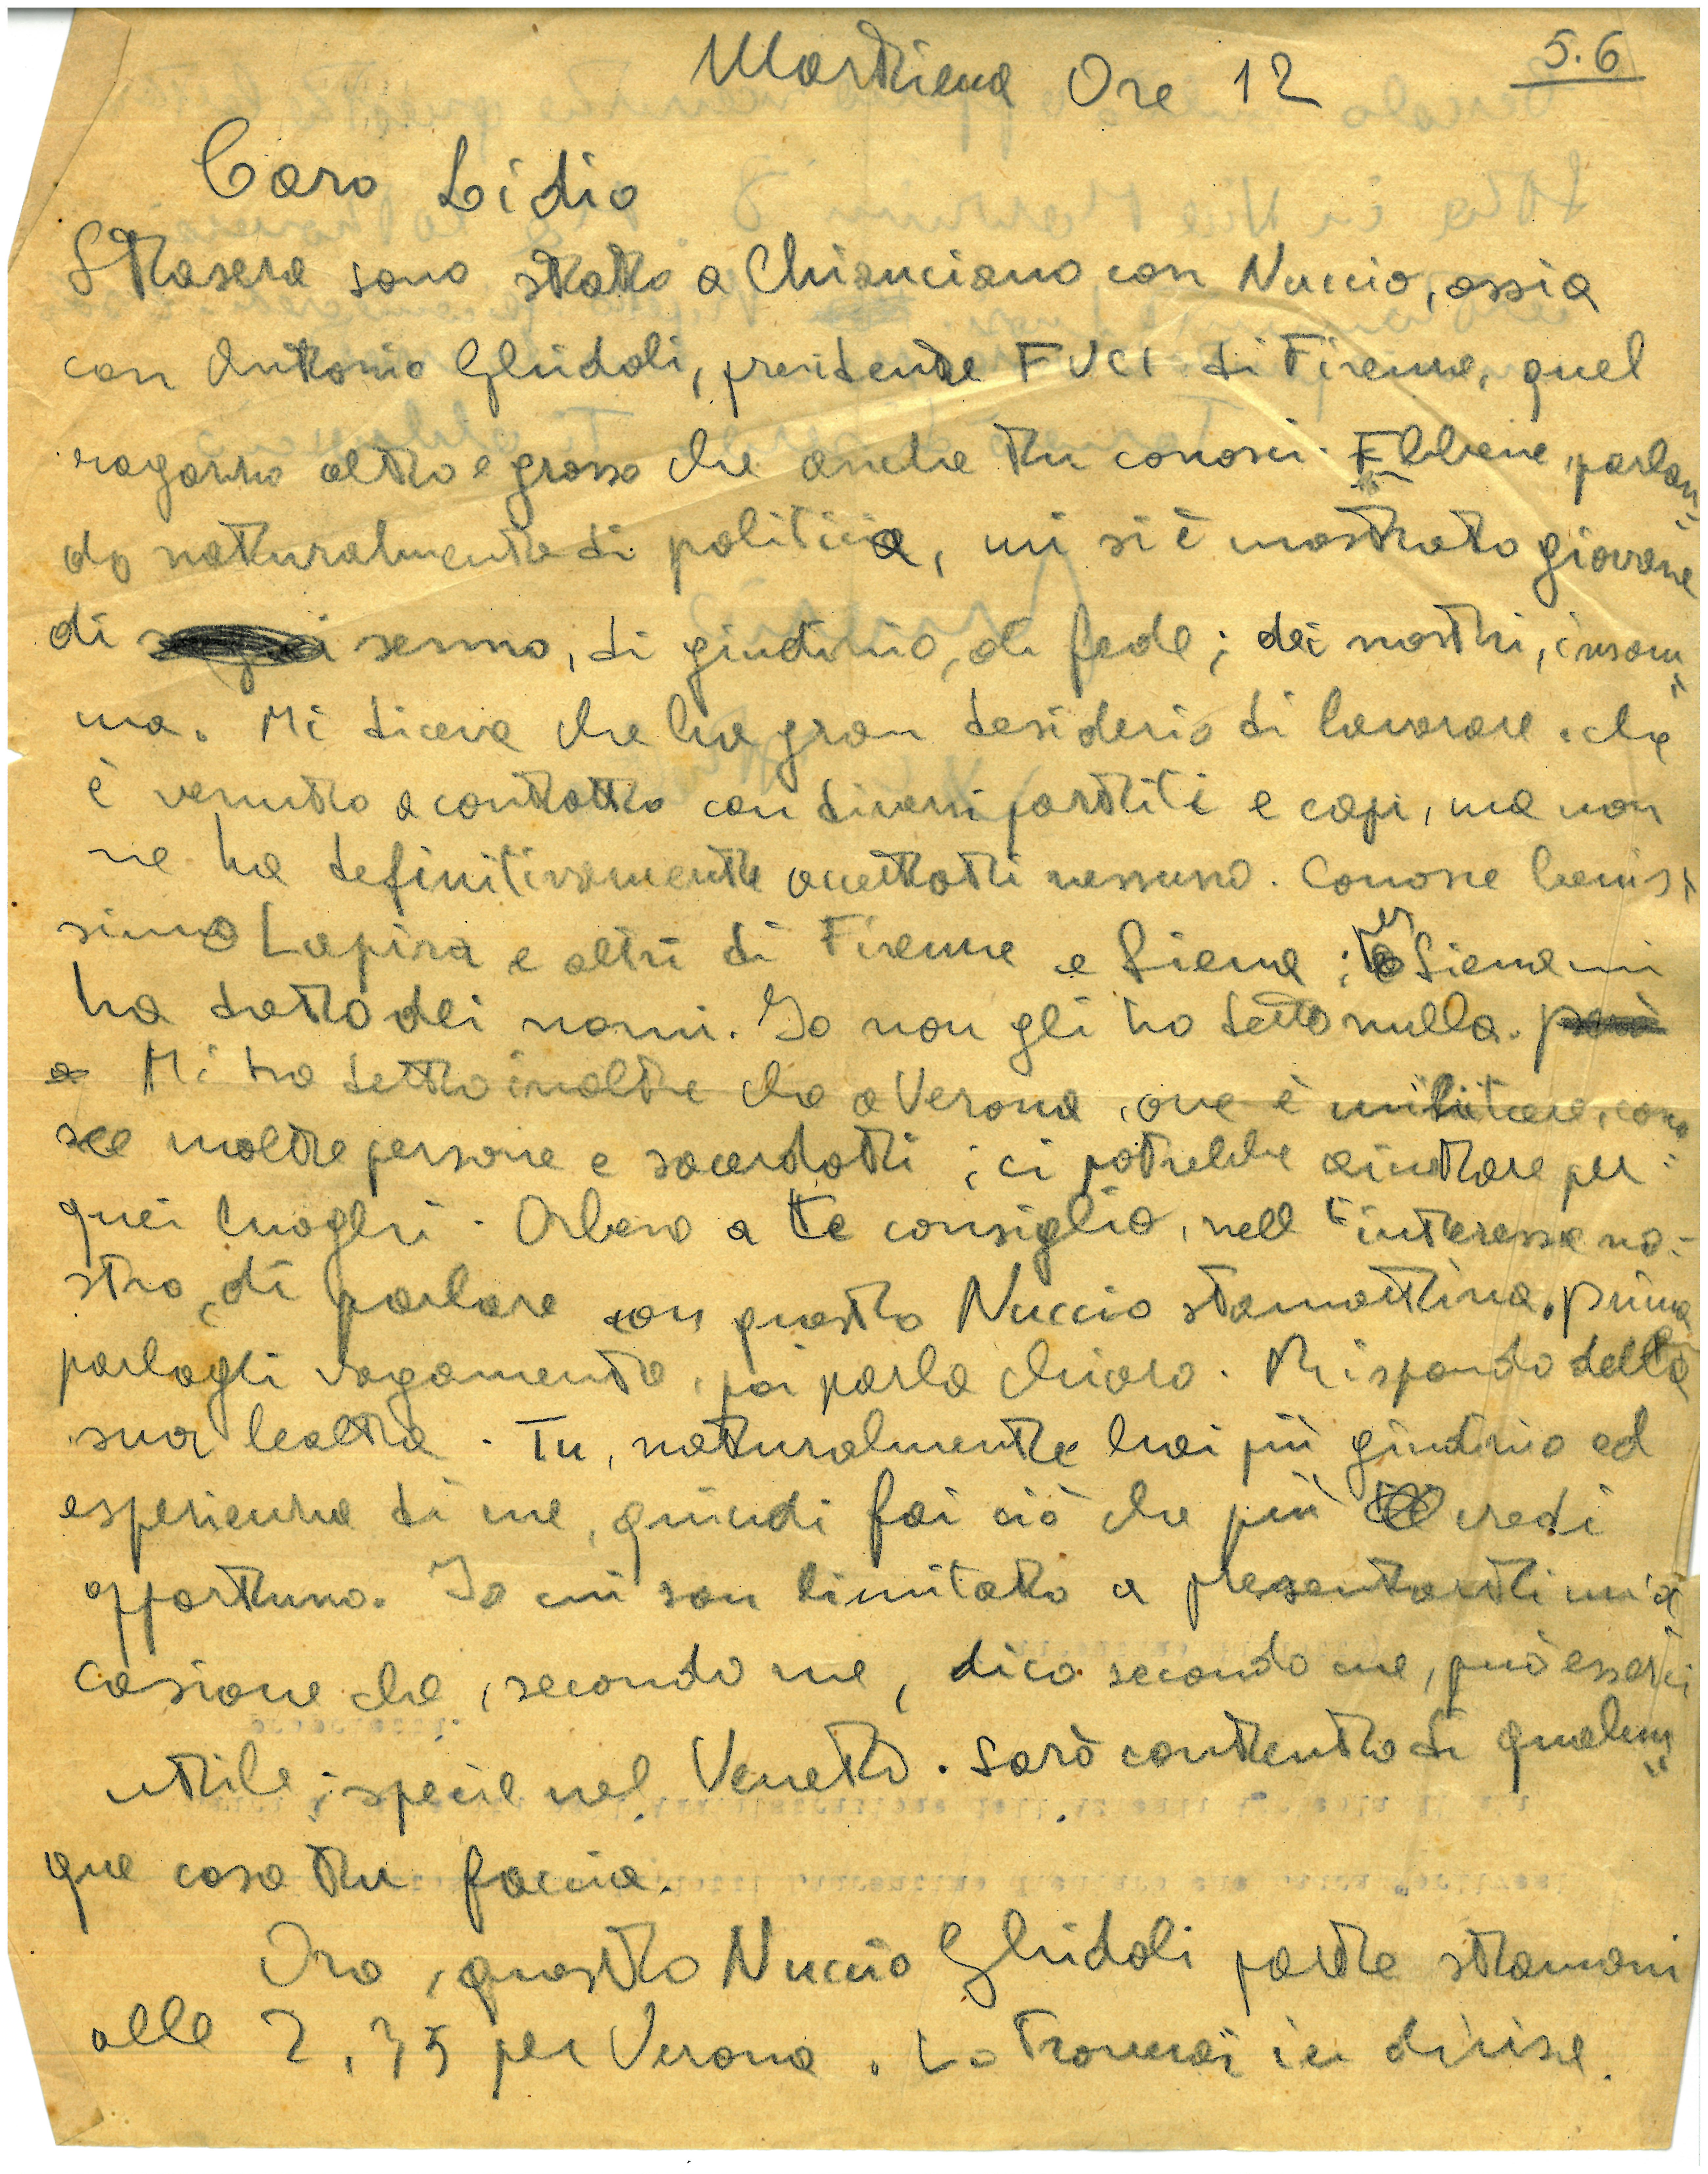 Marthiena Ore 12
5.6
Caro Lidio
Stasera sono stato a Chianciano con Nuccio, ossia
con Antonio Ghidoli, presidente FUCI di Firenze, quel
ragazzo alto e grosso che anche tu conosci. Ebbene, parlan=
do naturalmente di politica, mi si è mostrato giovane
di senno, di giudizio, di fede; dei nostri, insom=
ma. Mi diceva che ha gran desiderio di lavorare. che
è venuto a contatto con diversi partiti e capi, ma non
ne ha definitivamente accettati nessuno. Conosce benis=
simo Lapira e altri di Firenze e Siena; di Siena mi
ha dato dei nomi. Io non gli ho detto nulla. però
a Mi ha detto inoltre che a Verona, ove è militare, cono=
sce molte persone e sacerdoti; ci potrebbe aiutare per
quei luoghi. Orbene a te consiglio, nell'interesse no=
stro, di parlare con questo Nuccio stamattina. Prima
parlagli vagamente, poi parla chiaro. Rispondo della
sua lealtà. Tu, naturalmente hai più giudizio ed
esperienza di me, quindi fai ciò che più credi
opportuno. Io mi son limitato a presentarti un'oc
casione che, secondo me, dico secondo me, può esserci
utile; specie nel Veneto. Sarò contento di qualun=
que cosa tu faccia.
Ora, questo Nuccio Ghidoli parte stamani
alle 7,35 per Verona. Lo troverai in divisa.